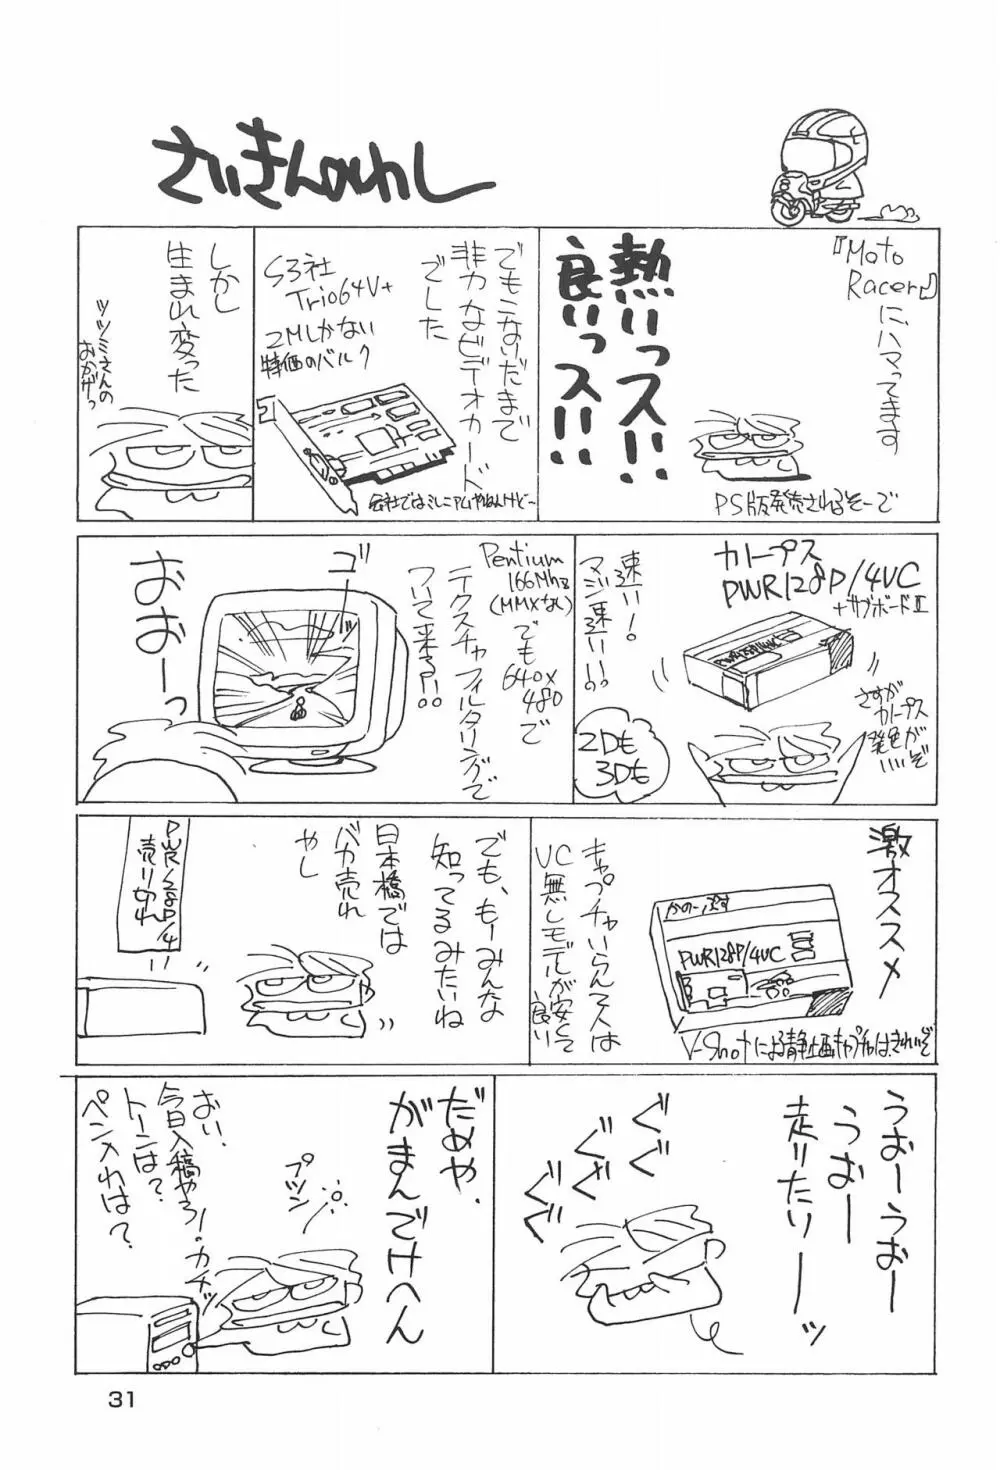 さいきんのわし
『Moto
Racer』に、ハマってます
熱いっス!!
良いっス!!
PS版発売されるそーで
でもこないだまで
非力なビデオカード
でした
S3社
Trio64V+
2Mしかない
特価のバルク
会社ではミレニアムやねんけど〜
しかし
生まれ変った
ツツミさんの
おかげっ
カノープス
PWR128P/4VC
+サブボードⅡ
速い!
マジ速い!!
さすが
カノープス
発色が
いいぞ
2Dも
3Dも
Pentium
166Mhz
(MMXなし)
でも
640×
480
で
テクスチャフィルタリングで
ついて来る!!
ゴーッ
おおーっ
激オススメ
かのーぷす
PWR128P/4VC
V-Shotによる静止画キャプチャは、きれいぞ
キャプチャいらん人は
VC無しモデルが安くて
良い
でも、もーみんな
知ってるみたいね
日本橋では
バカ売れ
やし
PWR128P/4
売り切れ
うおーうおー
うおー
走りたりーーッ
ぐぐ
ぐぐ
ぐぐ
だめや、
がまんでけへん
プツン
おい、
今日入稿やろ!
トーンは?
ペン入れは?
カチッ
31